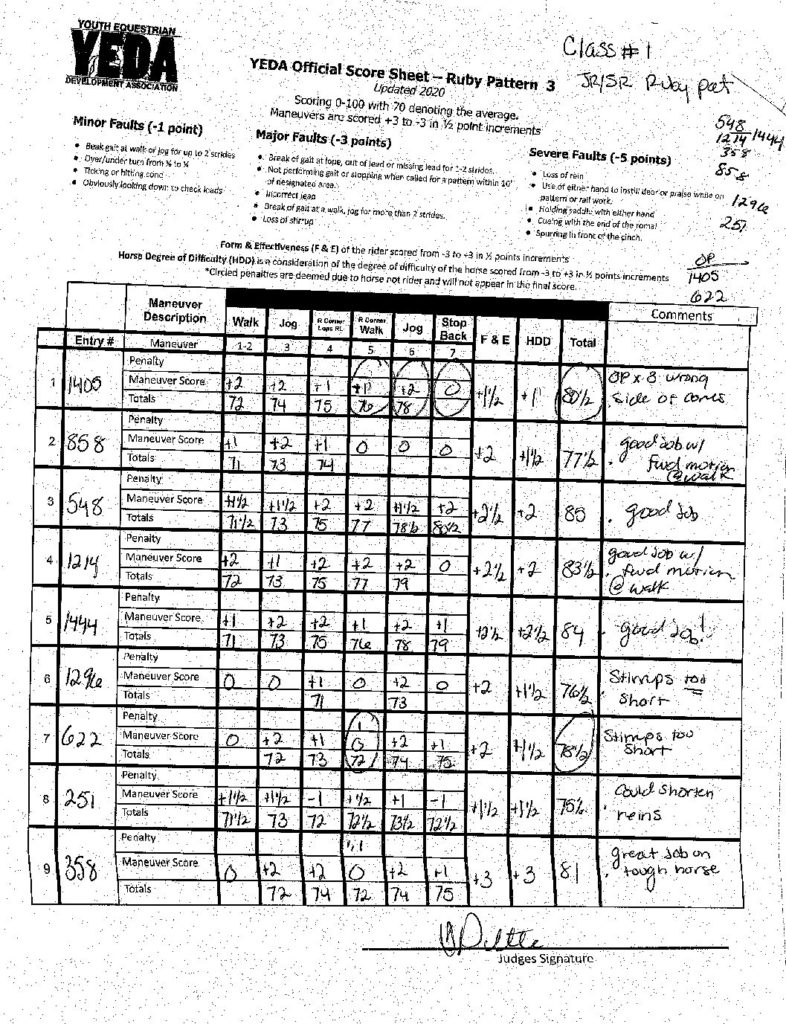 YOUTH EQUESTRIAN
YEDA
DEVELOPMENT ASSOCIATION
Class #1
JR/SR Ruby pat
YEDA Official Score Sheet – Ruby Pattern 3
Updated 2020
Scoring 0-100 with 70 denoting the average.
Maneuvers are scored +3 to -3 in ½ point increments
548
1214 1444
358
858
1296
251
OP
1405
622
Minor Faults (-1 point)
• Break gait at walk or jog for up to 2 strides
• Over/under turn from ⅛ to ¼
• Ticking or hitting cone
• Obviously looking down to check leads
Major Faults (-3 points)
• Break of gait at lope, out of lead or missing lead for 1-2 strides.
• Not performing gait or stopping when called for a pattern within 10' of designated area.
• Incorrect lead
• Break of gait at a walk, jog for more than 2 strides.
• Loss of stirrup
Severe Faults (-5 points)
• Loss of rein
• Use of either hand to instill fear or praise while on pattern or rail work.
• Holding saddle with either hand
• Cueing with the end of the romal
• Spurring in front of the cinch.
Form & Effectiveness (F & E) of the rider scored from -3 to +3 in ½ points increments
Horse Degree of Difficulty (HDD) is a consideration of the degree of difficulty of the horse scored from -3 to +3 in ½ points increments
*Circled penalties are deemed due to horse not rider and will not appear in the final score.
Maneuver Description Walk Jog R Corner Lope RL R Corner Walk Jog Stop Back F & E HDD Total Comments
Entry # Maneuver 1-2 3 4 5 6 7
Penalty
1 1405 Maneuver Score +2 +2 +1 +1 +2 0 +1½ +1 80½ OP x 3 wrong side of cones
Totals 72 74 75 76 78
Penalty
2 858 Maneuver Score +1 +2 +1 0 0 0 +2 +1½ 77½ good job w/ fwd motion @ walk
Totals 71 73 74
Penalty
3 548 Maneuver Score +1½ +1½ +2 +2 +1½ +2 +2½ +2 85 good job
Totals 71½ 73 75 77 78½ 80½
Penalty
4 1214 Maneuver Score +2 +1 +2 +2 +2 0 +2½ +2 83½ good job w/ fwd motion @ walk
Totals 72 73 75 77 79
Penalty
5 1444 Maneuver Score +1 +2 +2 +1 +2 +1 +2½ +2½ 84 good job!
Totals 71 73 75 76 78 79
Penalty
6 1296 Maneuver Score 0 0 +1 0 +2 0 +2 +1½ 76½ Stirrups too short
Totals 71 73
Penalty 1
7 622 Maneuver Score 0 +2 +1 0 +2 +1 +2 +1½ 78½ Stirrups too short
Totals 72 73 72 74 75
Penalty
8 251 Maneuver Score +1½ +1½ -1 +½ +1 -1 +1½ +1½ 75½ Could shorten reins
Totals 71½ 73 72 72½ 73½ 72½
Penalty 1,1
9 358 Maneuver Score 0 +2 +2 0 +2 +1 +3 +3 81 great job on tough horse
Totals 72 74 72 74 75
Judges Signature